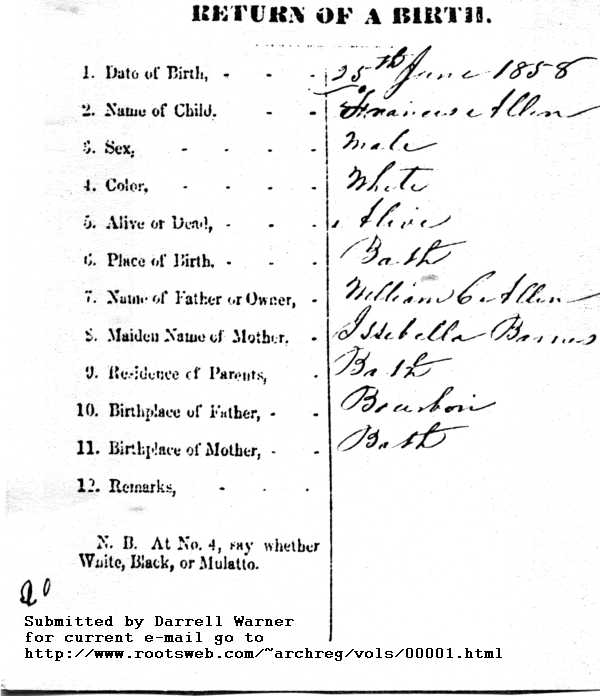 RETURN OF A BIRTH.
1. Date of Birth, - - - 25th June 1858
2. Name of Child. - - Frances Allen
3. Sex, - - - - Male
4. Color, - - - - White
5. Alive or Dead, - - - Alive
6. Place of Birth. - - - Bath
7. Name of Father or Owner, - William C Allen
8. Maiden Name of Mother. - Issebella Barnes
9. Residence of Parents, - Bath
10. Birthplace of Father, - - Bourbon
11. Birthplace of Mother, - - Bath
12. Remarks, - - -
N. B. At No. 4, say whether
White, Black, or Mulatto.
Submitted by Darrell Warner
for current e-mail go to
http://www.rootsweb.com/~archreg/vols/00001.html